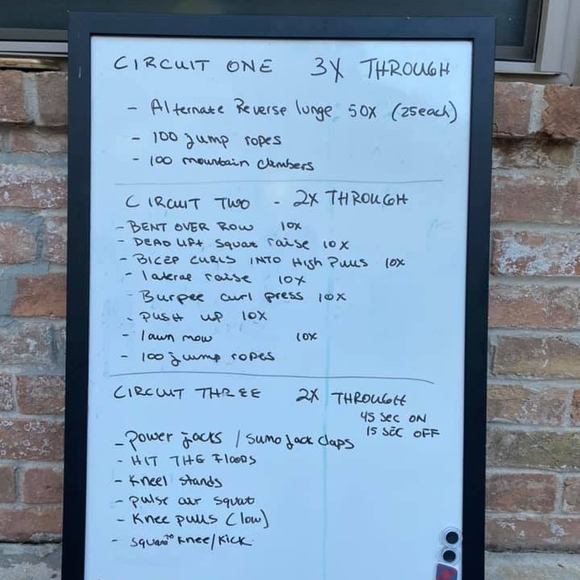 CIRCUIT ONE 3X THROUGH
- Alternate Reverse lunge 50X (25each)
- 100 jump ropes
- 100 mountain climbers
CIRCUIT TWO - 2X THROUGH
- BENT OVER ROW 10X
- DEAD LIFT Squat raise 10X
- BICEP CURLS INTO High Pulls 10X
- lateral raise 10X
- Burpee curl press 10X
- PUSH UP 10X
- lawn mow 10X
- 100 jump ropes
CIRCUIT THREE 2X THROUGH
45 SEC ON
15 SEC OFF
- power jacks / Sumo jack claps
- HIT THE FLOORS
- Kneel stands
- pulse air squat
- Knee pulls (low)
- squat to Knee/Kick